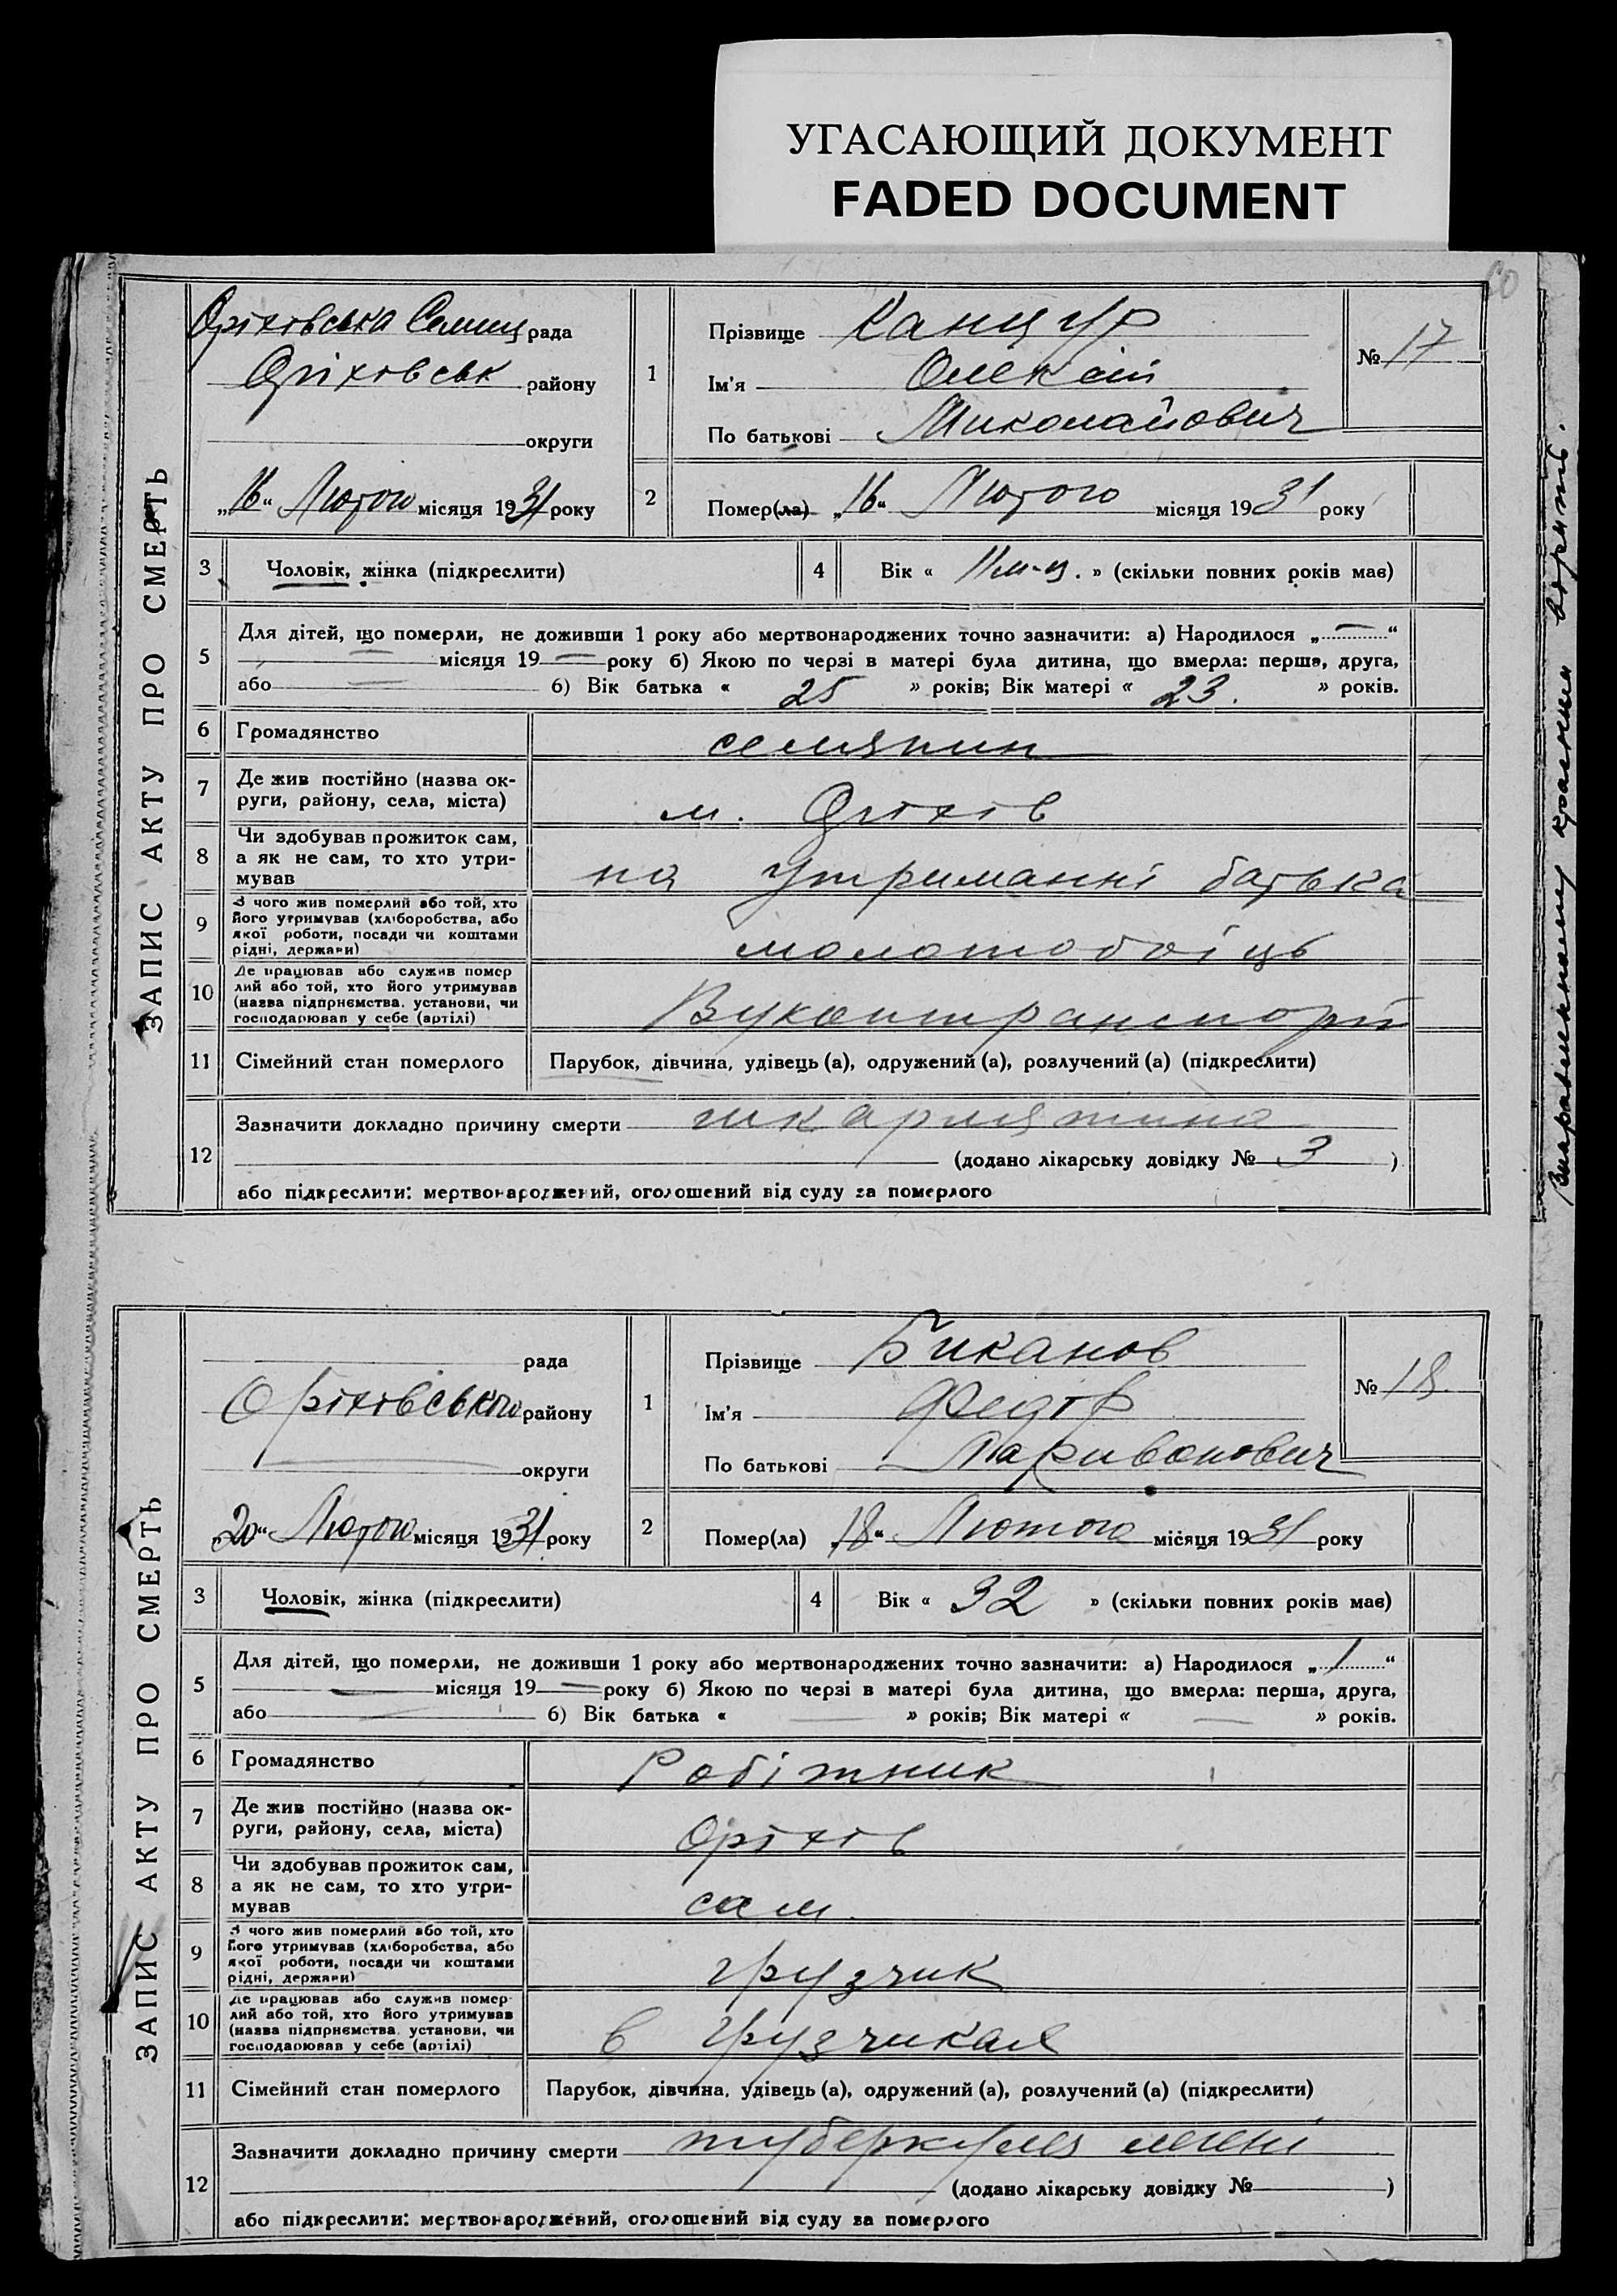 УГАСАЮЩИЙ ДОКУМЕНТ
FADED DOCUMENT
60
ЗАПИС АКТУ ПРО СМЕРТЬ
Оріховська Селищ рада
Оріховськ району
округи
„16“ Лютого місяця 1931 року
1
Прізвище Канцур
Ім'я Олексій
По батькові Миколайович
№ 17
2
Помер(ла) „16“ Лютого місяця 1931 року
3
Чоловік, жінка (підкреслити)
4
Вік « 11 м-ц. » (скільки повних років має)
5
Для дітей, що померли, не доживши 1 року або мертвонароджених точно зазначити: а) Народилося „—“
— місяця 19 — року б) Якою по черзі в матері була дитина, що вмерла: перша, друга,
або — б) Вік батька « 25 » років; Вік матері « 23. » років.
6
Громадянство
селянин
7
Де жив постійно (назва ок-
руги, району, села, міста)
м. Оріхів
8
Чи здобував прожиток сам,
а як не сам, то хто утри-
мував
на утриманні батька
9
З чого жив померлий або той, хто
його утримував (хліборобства, або
якої роботи, посади чи коштами
рідні, держави)
молотобоіць
10
Де працював або служив помер
лий або той, хто його утримував
(назва підприємства, установи, чи
господарював у себе (артілі)
11
Сімейний стан померлого
Парубок, дівчина, удівець (а), одружений (а), розлучений (а) (підкреслити)
12
Зазначити докладно причину смерти шкарлятина
(додано лікарську довідку № 3 )
або підкреслити: мертвонароджений, оголошений від суду за померлого
ЗАПИС АКТУ ПРО СМЕРТЬ
рада
Оріхівського району
округи
„20“ Лютого місяця 1931 року
1
Прізвище Биканов
Ім'я Федір
По батькові Паривонович
№ 18.
2
Помер(ла) „18“ Лютого місяця 1931 року
3
Чоловік, жінка (підкреслити)
4
Вік « 32 » (скільки повних років має)
5
Для дітей, що померли, не доживши 1 року або мертвонароджених точно зазначити: а) Народилося „/“
— місяця 19 — року б) Якою по черзі в матері була дитина, що вмерла: перша, друга,
або — б) Вік батька « — » років; Вік матері « — » років.
6
Громадянство
Робітник
7
Де жив постійно (назва ок-
руги, району, села, міста)
Оріхів
8
Чи здобував прожиток сам,
а як не сам, то хто утри-
мував
сам.
9
З чого жив померлий або той, хто
його утримував (хліборобства, або
якої роботи, посади чи коштами
рідні, держави)
грузчик
10
Де працював або служив помер-
лий або той, хто його утримував
(назва підприємства, установи, чи
господарював у себе (артілі)
в грузчиках
11
Сімейний стан померлого
Парубок, дівчина, удівець (а), одружений (а), розлучений (а) (підкреслити)
12
Зазначити докладно причину смерти туберкульз легені
(додано лікарську довідку № )
або підкреслити: мертвонароджений, оголошений від суду за померлого